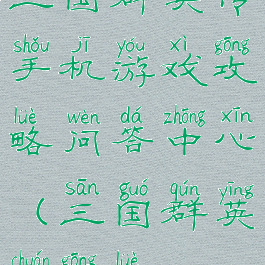 shǒu jī yóu xì gōng
手机游戏攻
lüè wèn dá zhōng xīn
略问答中心
sān guó qún yīng
（三国群英
chuán gōng lüè